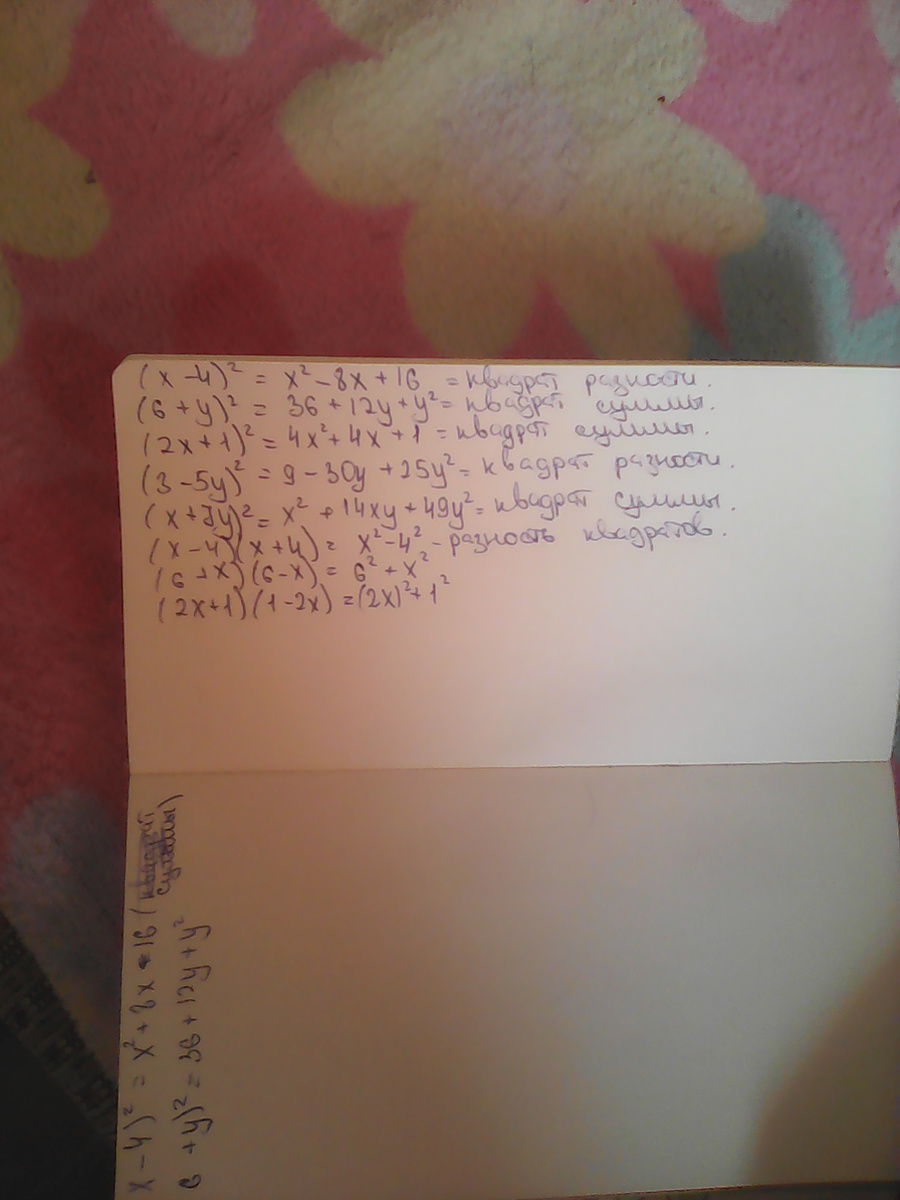 (x-4)² = x² - 8x + 16 = квадрат разности.
(6+y)² = 36 + 12y + y² = квадрат суммы.
(2x+1)² = 4x² + 4x + 1 = квадрат суммы.
(3-5y)² = 9 - 30y + 25y² = квадрат разности.
(x+7y)² = x² + 14xy + 49y² = квадрат суммы.
(x-4)(x+4) = x² - 4² - разность квадратов.
(6+x)(6-x) = 6² + x²
(2x+1)(1-2x) = (2x)² + 1²
x-4)² = x² + 8x - 16 (квадрат
суммы)
6 + y)² = 36 + 12y + y²